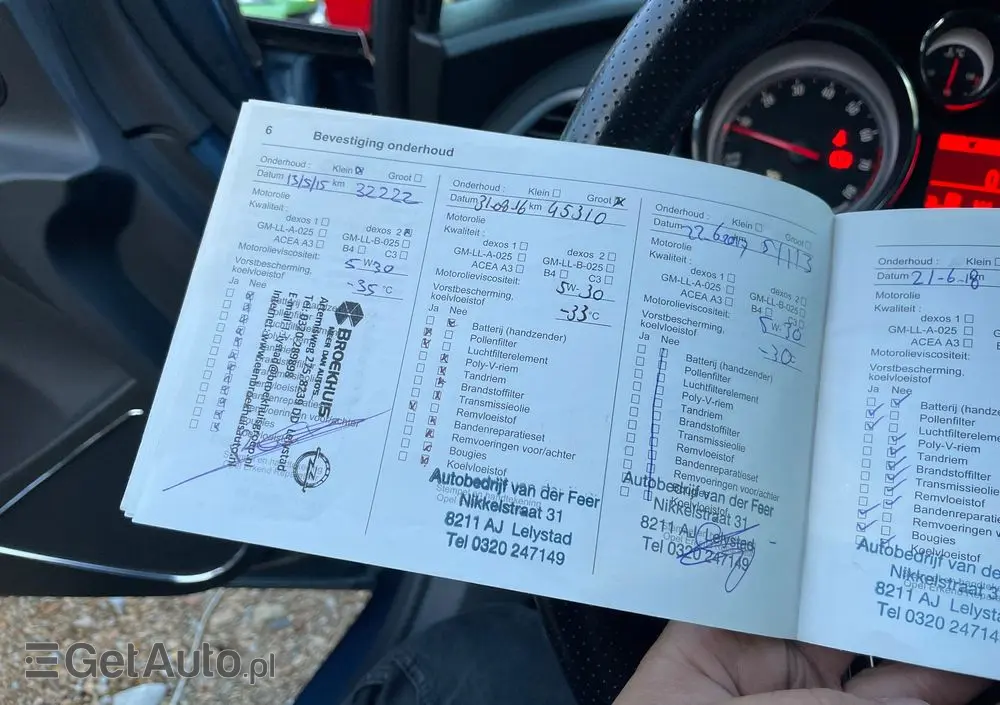 6 Bevestiging onderhoud
Onderhoud : Klein Groot
Datum 13/5/15 km 32222
Motorolie
Kwaliteit : dexos 1 dexos 2
GM-LL-A-025 GM-LL-B-025
ACEA A3 B4 C3
Motorolieviscositeit: 5W-30
Vorstbescherming,
koelvloeistof -35 °C
Ja Nee
BROEKHUIS
MEER DAN AUTO'S
Artemisweg 225, 8239 DD Lelystad
Onderhoud : Klein Groot
Datum 31-08-16 km 45310
Motorolie
Kwaliteit : dexos 1 dexos 2
GM-LL-A-025 GM-LL-B-025
ACEA A3 B4 C3
Motorolieviscositeit: 5W-30
Vorstbescherming,
koelvloeistof -33 °C
Ja Nee
Batterij (handzender)
Pollenfilter
Luchtfilterelement
Poly-V-riem
Tandriem
Brandstoffilter
Transmissieolie
Remvloeistof
Bandenreparatieset
Remvoeringen voor/achter
Bougies
Koelvloeistof
Autobedrijf van der Feer
Nikkelstraat 31
8211 AJ Lelystad
Tel 0320 247149
Onderhoud : Klein Groot
Datum 22-6-2017 51113
Motorolie
Kwaliteit : dexos 1 dexos 2
GM-LL-A-025 GM-LL-B-025
ACEA A3 B4 C3
Motorolieviscositeit: 5W-30
Vorstbescherming,
koelvloeistof -30
Ja Nee
Batterij (handzender)
Pollenfilter
Luchtfilterelement
Poly-V-riem
Tandriem
Brandstoffilter
Transmissieolie
Remvloeistof
Bandenreparatieset
Remvoeringen voor/achter
Autobedrijf van der Feer
Nikkelstraat 31
8211 AJ Lelystad
Tel 0320 247149
Onderhoud :
Datum 21-6-18
Motorolie
Kwaliteit :
dexos 1
GM-LL-A-025
ACEA A3
Motorolieviscositeit:
Vorstbescherming,
koelvloeistof
Ja Nee
Batterij (handze
Pollenfilter
Luchtfilterelemen
Poly-V-riem
Tandriem
Brandstoffilter
Transmissieolie
Remvloeistof
Bandenreparatie
Remvoeringen vo
Bougies
Koelvloeistof
Autobedrijf van de
Nikkelstraat 3
8211 AJ Lelyst
Tel 0320 24714
GetAuto.pl